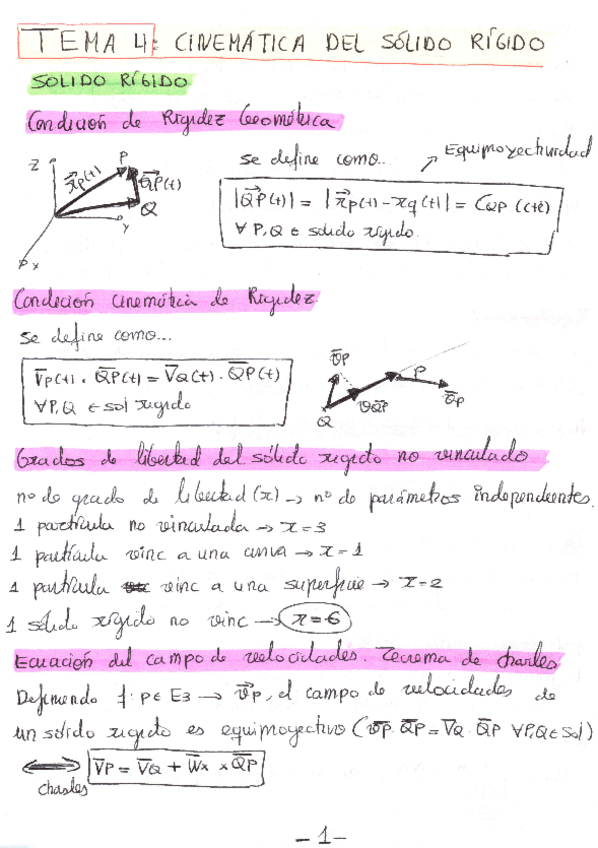 TEMA 4: CINEMÁTICA DEL SÓLIDO RÍGIDO
SOLIDO RÍGIDO
Condición de Rigidez Geométrica
Se define como... → Equiproyectividad
Z P x⃗p(t) Q⃗P(t) Q Y X
|Q⃗P(t)| = |x⃗p(t) - xq(t)| = CQP (cte)
∀ P,Q ∈ sólido rígido.
Condición cinemática de Rigidez.
se define como...
V̅p(t) · Q̅P(t) = V̅Q(t) · Q̅P(t)
∀P,Q ∈ sol rígido
v̅p P v̅p Q
Grados de libertad del sólido rígido no vinculado
nº de grado de libertad (x) → nº de parámetros independientes.
1 partícula no vinculada → x=3
1 partícula vinc a una curva → x=1
1 partícula vinc a una superficie → x=2
1 sólido rígido no vinc → x=6
Ecuación del campo de velocidades. Teorema de Charles
Definiendo f: P∈E3 → v̅p, el campo de velocidades de
un sólido rígido es equiproyectivo (v̅p · Q̅P = V̅Q · Q̅P ∀P,Q∈Sol)
⟺ V̅P = V̅Q + W̅x × Q̅P
Chasles
-1-